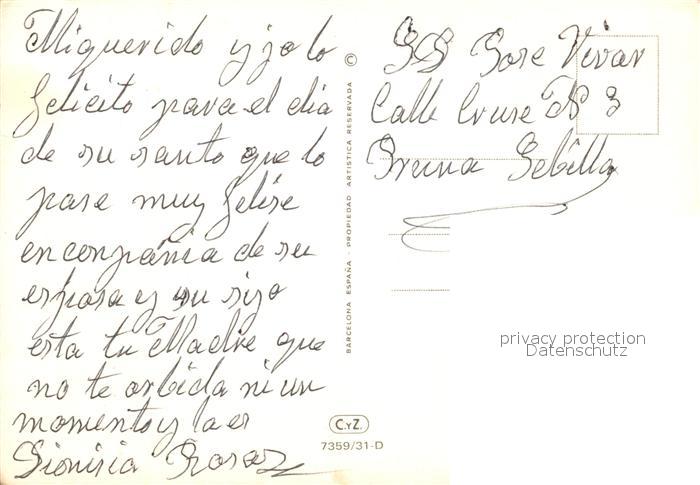 Miquerido yjo lo
felicito para el dia
de su santo que lo
pase muy felise
en conpáñia de su
esposa y su sijo
esta tu Madre que
no te orbida ni un
momento y la es
Dionisia
BARCELONA ESPAÑA - PROPIEDAD ARTISTICA RESERVADA ©
C.yZ.
7359/31-D
Jose Vivar
Calle Cruse N 3
Pruna Sebilla
privacy protection
Datenschutz